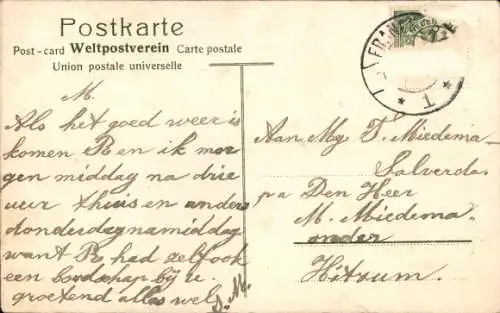 Postkarte
Post-card Weltpostverein Carte postale
Union postale universelle
M.
Als het goed weer is
komen R en ik mor
gen middag na drie
uur thuis en anders
donderdagnamiddag
want R had zelf ook
een boodschap bij u.
groetend alles wel
D. M.
FRAN
T
Aan Mej T. Miedema-
Salverda.
pa Den Heer
M. Miedema.
onder
Hitzum.